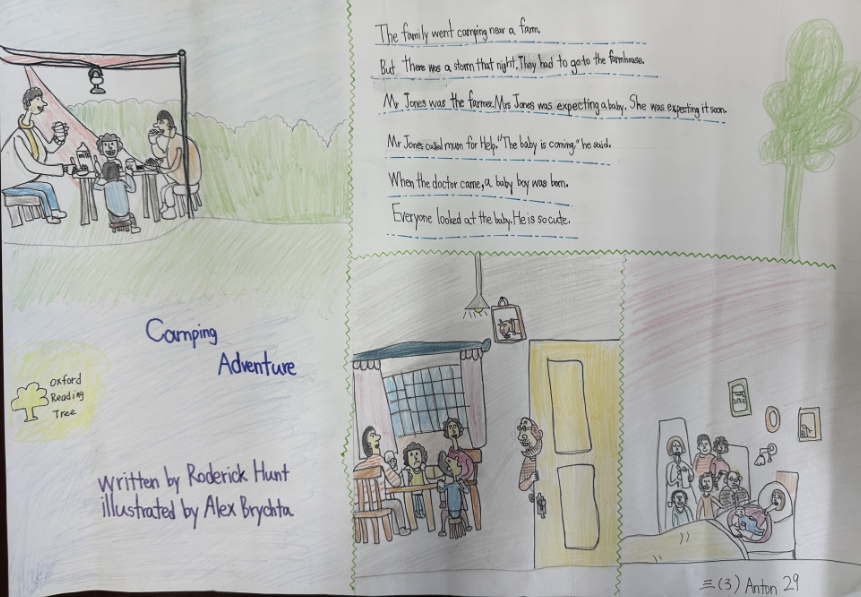 The family went camping near a farm.
But There was a storm that night. They had to go to the farmhouse.
Mr Jones was the farmer. Mrs Jones was expecting a baby. She was expecting it soon.
Mr Jones called mum for Help. "The baby is coming," he said.
When the doctor came, a baby boy was born.
Everyone looked at the baby. He is so cute.
Camping
Adventure
Oxford
Reading
Tree
written by Roderick Hunt
illustrated by Alex Brychta
三(3) Anton 29